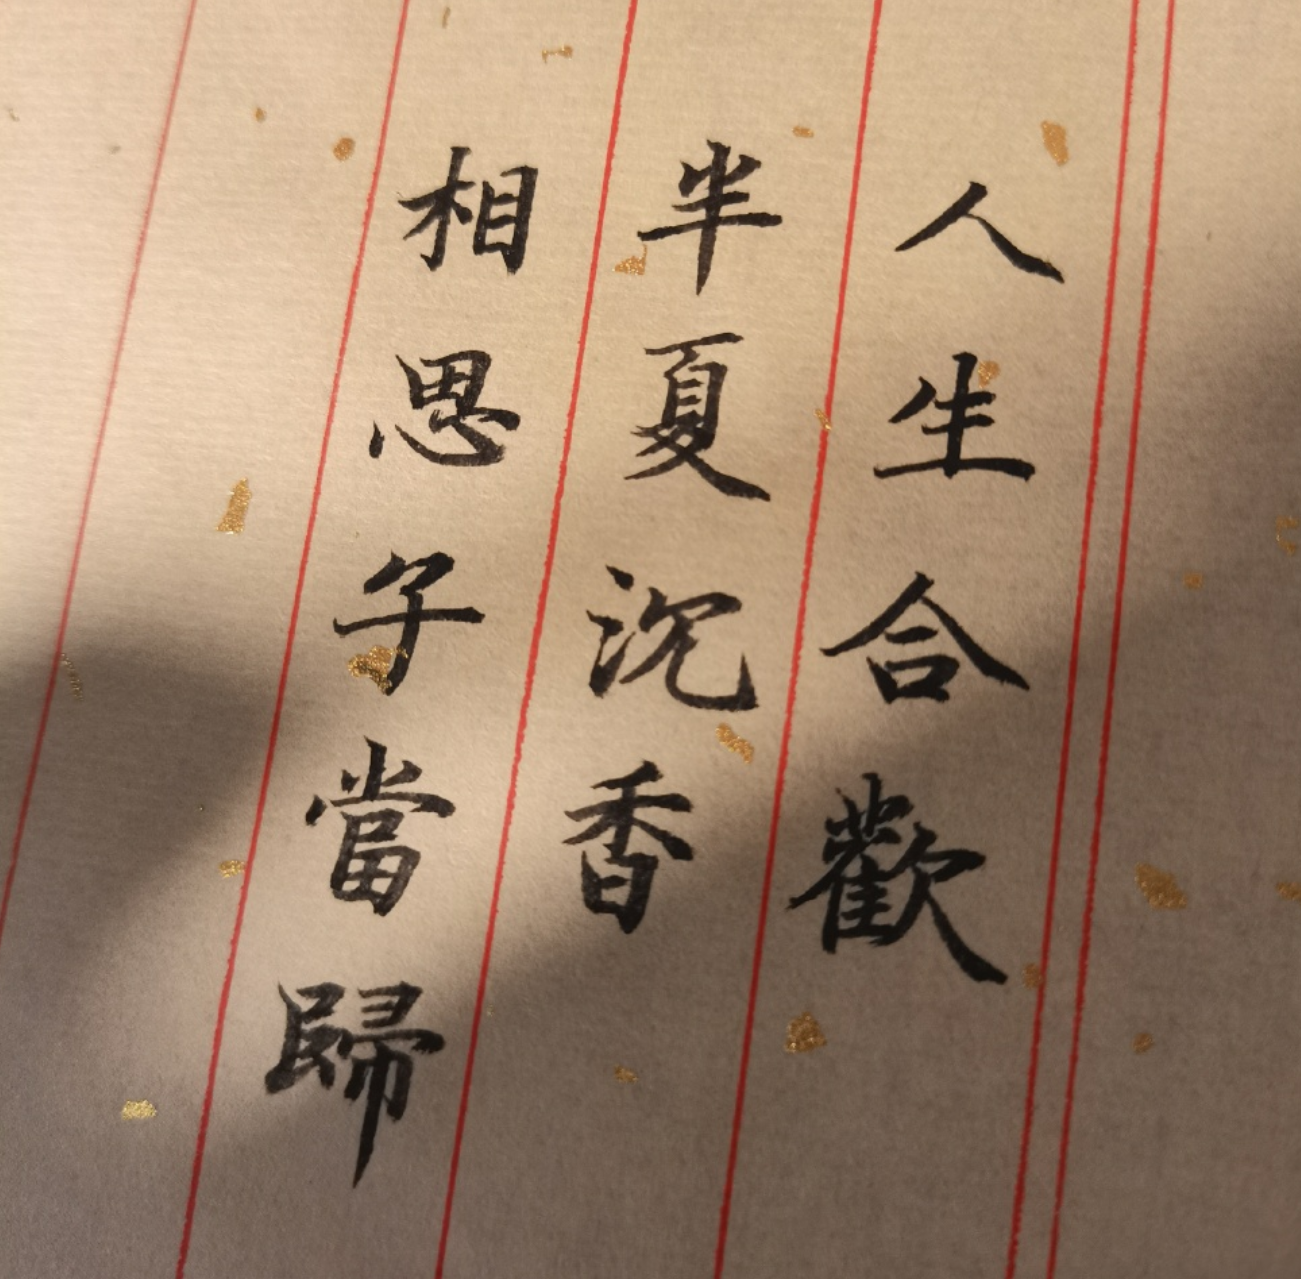 人生合歡
半夏沉香
相思子當歸